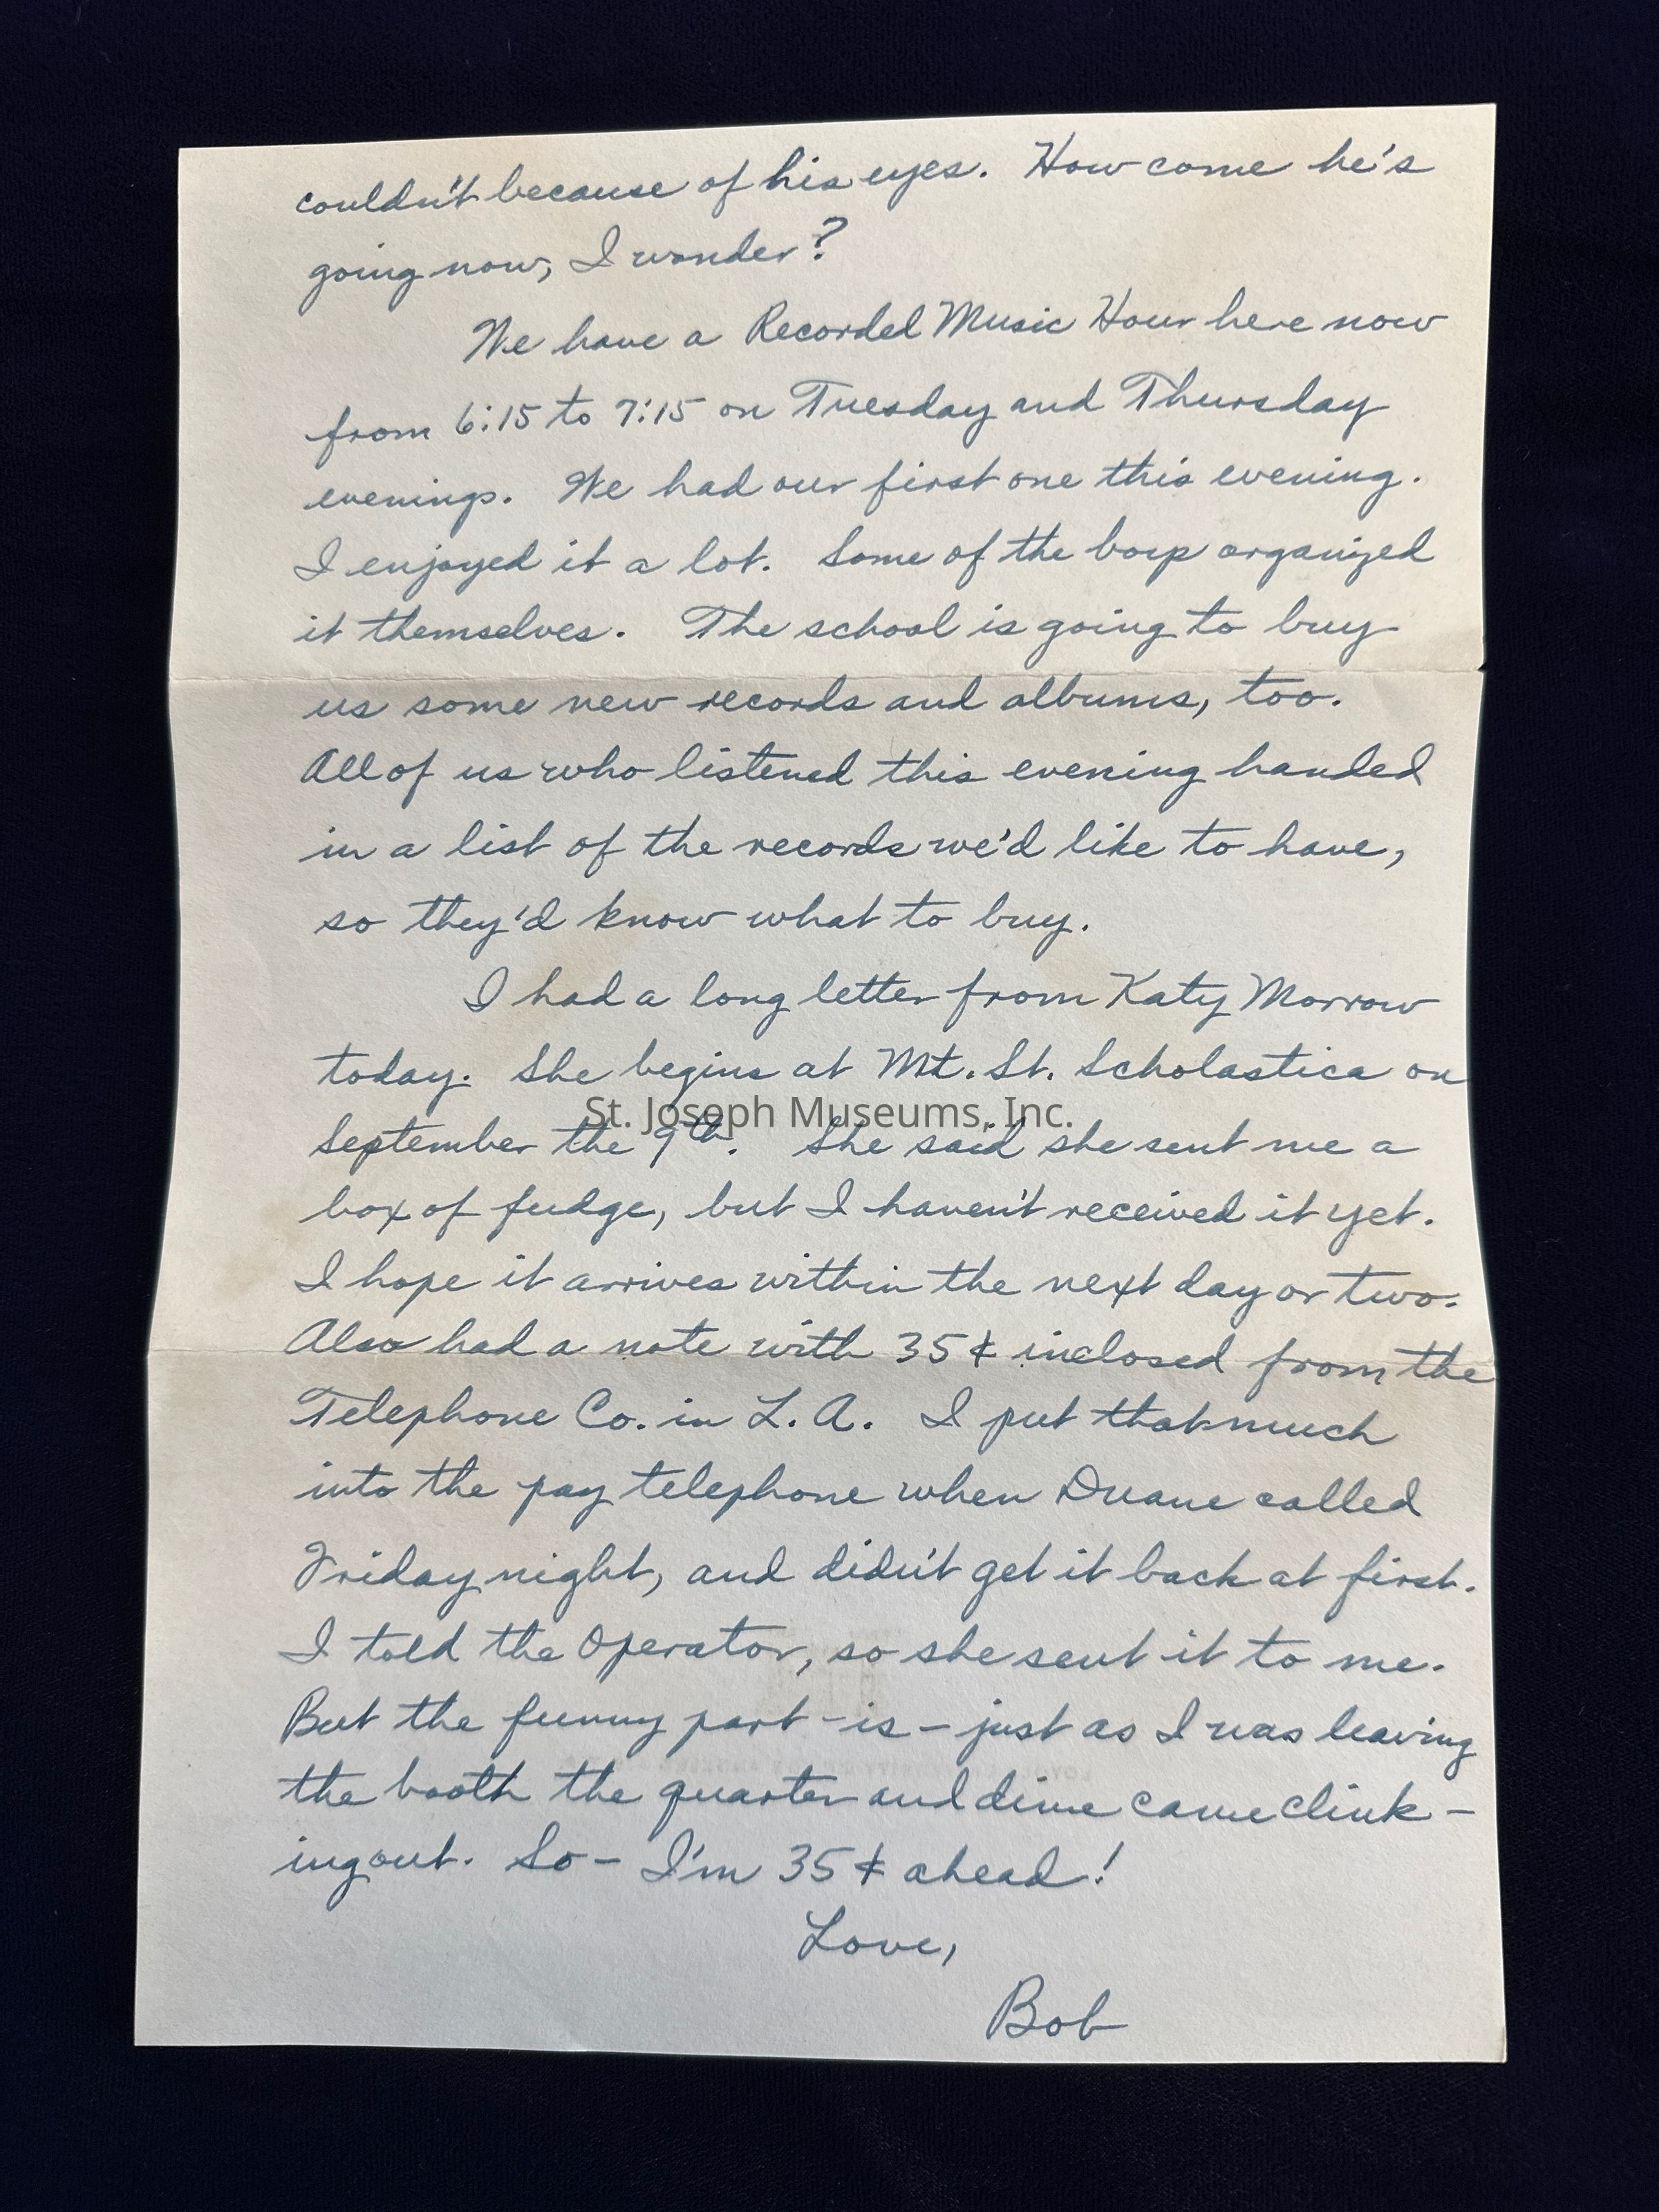 couldn't because of his eyes. How come he's
going now, I wonder?
We have a Recorded Music Hour here now
from 6:15 to 7:15 on Tuesday and Thursday
evenings. We had our first one this evening.
I enjoyed it a lot. Some of the boys organized
it themselves. The school is going to buy
us some new records and albums, too.
All of us who listened this evening handed
in a list of the records we'd like to have,
so they'd know what to buy.
I had a long letter from Katy Morrow
today. She begins at Mt. St. Scholastica on
St. Joseph Museums, Inc.
September the 9th. She said she sent me a
box of fudge, but I haven't received it yet.
I hope it arrives within the next day or two.
Also had a note with 35¢ inclosed from the
Telephone Co. in L. A. I put that much
into the pay telephone when Duane called
Friday night, and didn't get it back at first.
I told the Operator, so she sent it to me.
But the funny part - is - just as I was leaving
the booth the quarter and dime came clink -
ing out. So - I'm 35¢ ahead!
Love,
Bob